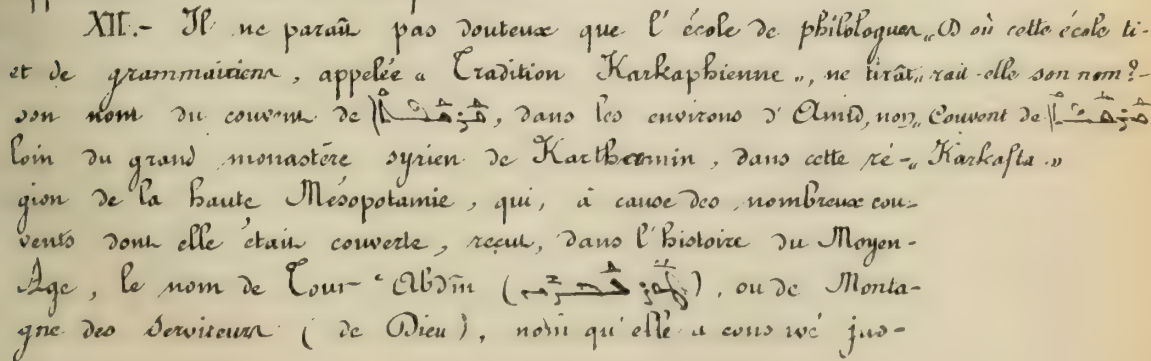 XII.- Il ne paraît pas douteux que l'école de philologues
et de grammairiens, appelée « Tradition Karkaphienne », ne tirât
son nom du couvent de ܩܪܩܦܬܐ, dans les environs d'Amid, non
loin du grand monastère syrien de Karthamin, dans cette ré-
gion de la haute Mésopotamie, qui, à cause des nombreux cou-
vents dont elle était couverte, reçut, dans l'histoire du Moyen-
Age, le nom de Tour-ʿAbdîn (ܛܘܪ ܥܒܕܝܢ), ou de Monta-
gne des Serviteurs (de Dieu), nom qu'elle a jus-
„ D'où cette école ti-
„ rait-elle son nom?-
„ Couvent de ܩܪܩܦܬܐ
„ Karkafta. »